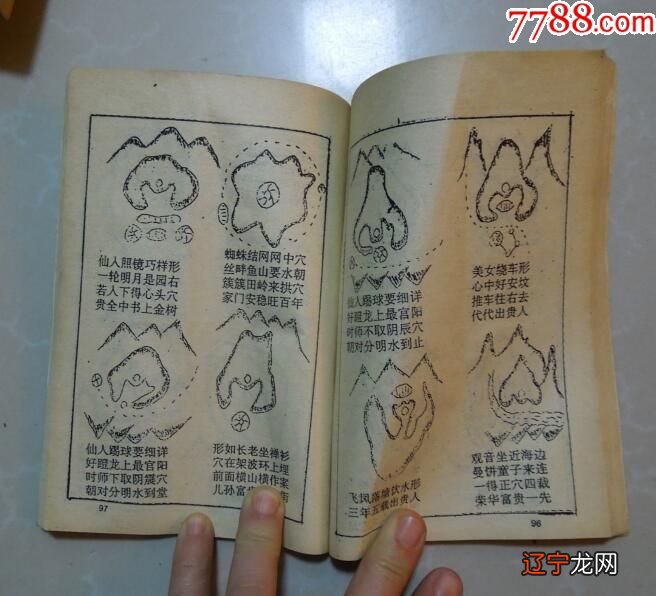 7788.com
仙人照镜巧样形
一轮明月是园右
若人下得心头穴
贵全中书上金树
蜘蛛结网网中穴
丝畔鱼山要水朝
簇簇田岭来拱穴
家门安稳旺百年
仙人踢球要细详
好蹬龙上最官阳
时师下取阴震穴
朝对分明水到堂
形如长老坐禅衫
穴在架波环上埋
前面横山横作案
儿孙富
97
仙人踢球要细详
好蹬龙上最宫阳
时师不取阴辰穴
朝对分明水到止
美女绕车形
心中好安坟
推车住右去
代代出贵人
飞凤落塘饮水形
三年五载出贵人
观音坐近海边
曼饼童子来连
一得正穴四裁
荣华富贵一先
96
辽宁龙网